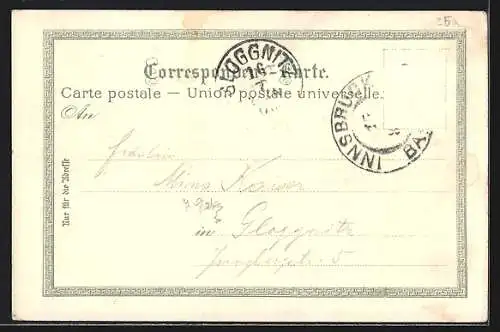 25a
GLOGGNITZ
Correspondenz-Karte.
Carte postale — Union postale universelle.
INNSBRUCK BA
An
Fräulein
Mina Kaiser
in Gloggnitz
5
Nur für die Adresse